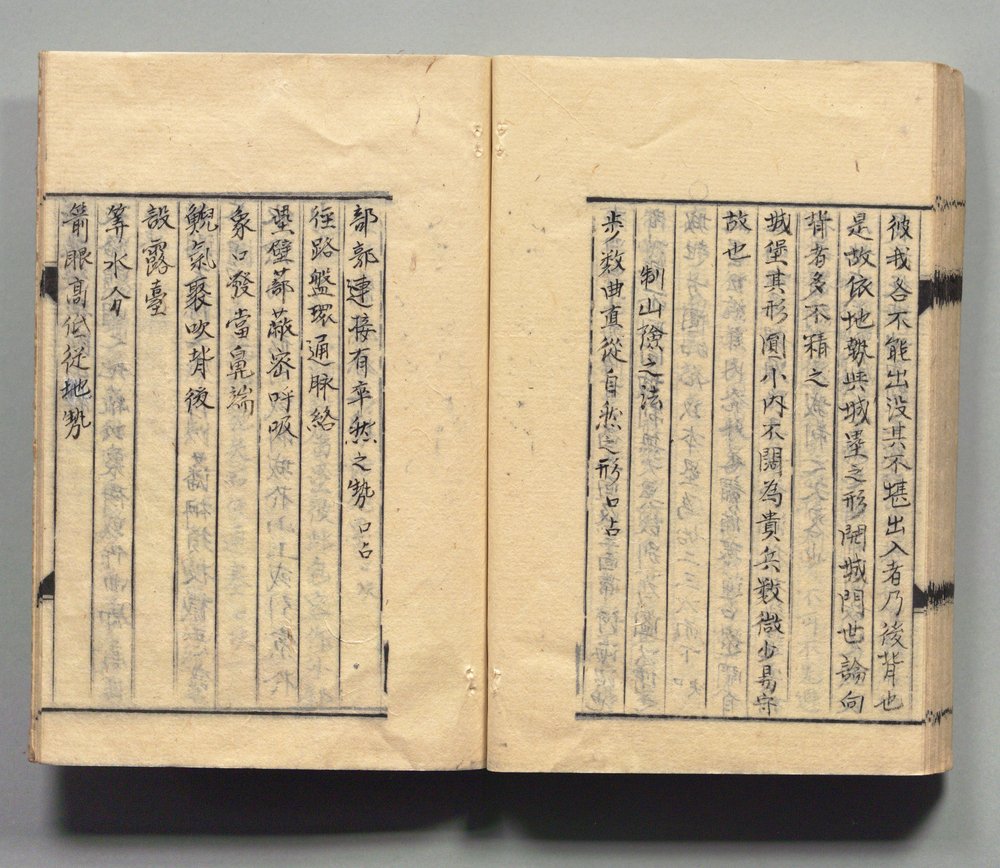 彼我各不能出没其不堪出入者乃後背也
是故依地勢与城塁之形開城門世論向
背者多不精之
城堡其形圓小内不闊為貴兵数微少易守
故也
制山險之法
歩数曲直從自然之形口占
部郭連接有率然之勢口占
径路盤環通脉絡
塁壁蔀蔽密呼吸
象口發當鼻端
鯢氣聚吹背後
設露臺
筭水分
箭眼髙低従地勢